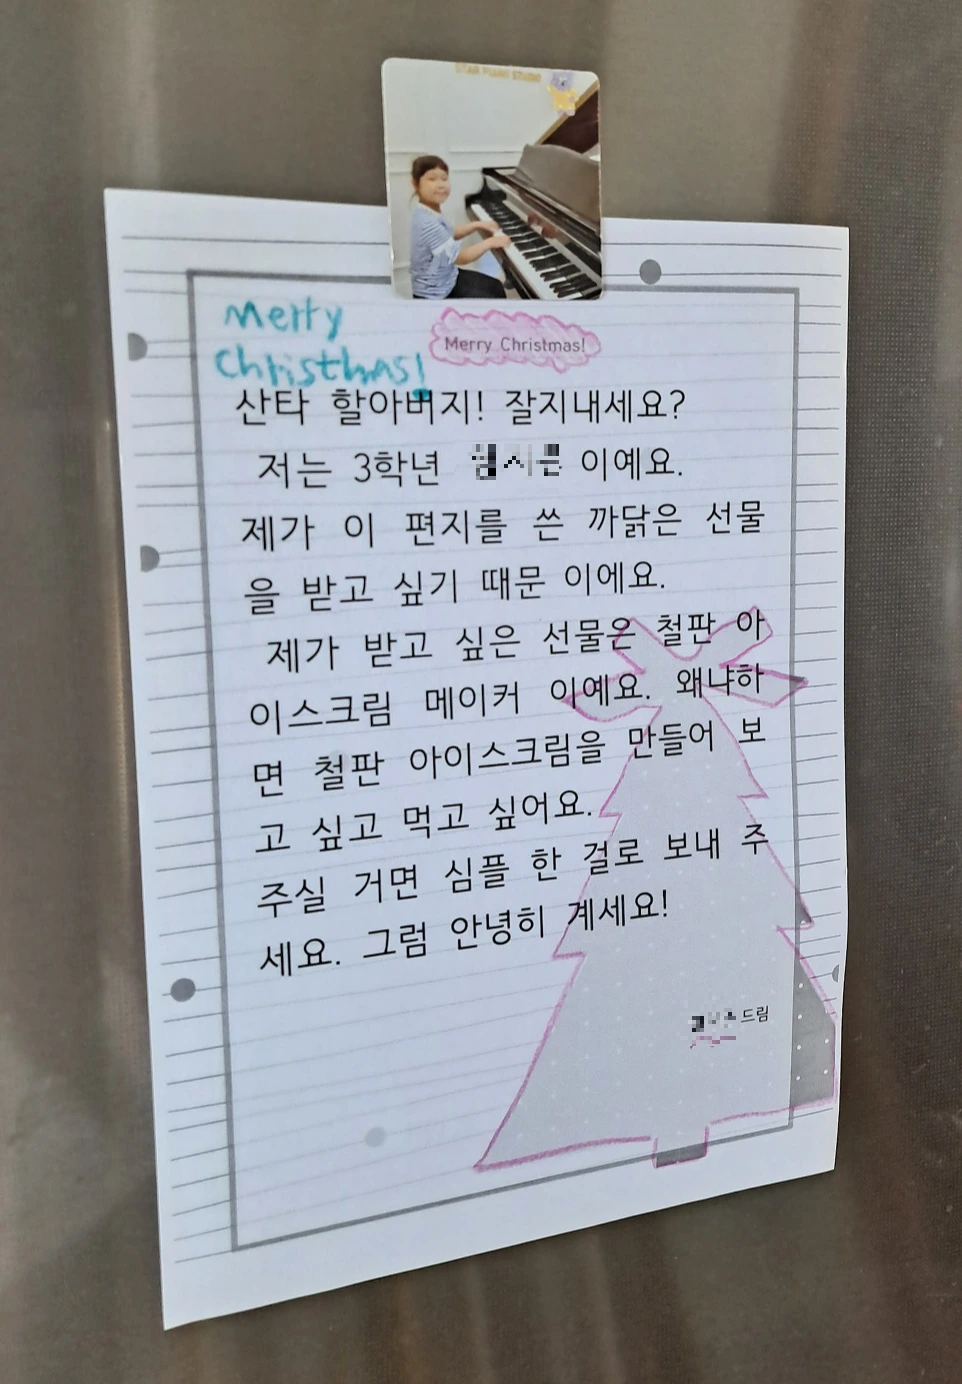 STAR PIANO STUDIO
Merry
Christmas!
Merry Christmas!
산타 할아버지! 잘지내세요?
저는 3학년 이예요.
제가 이 편지를 쓴 까닭은 선물
을 받고 싶기 때문 이에요.
제가 받고 싶은 선물은 철판 아
이스크림 메이커 이예요. 왜냐하
면 철판 아이스크림을 만들어 보
고 싶고 먹고 싶어요.
주실 거면 심플 한 걸로 보내 주
세요. 그럼 안녕히 계세요!
드림